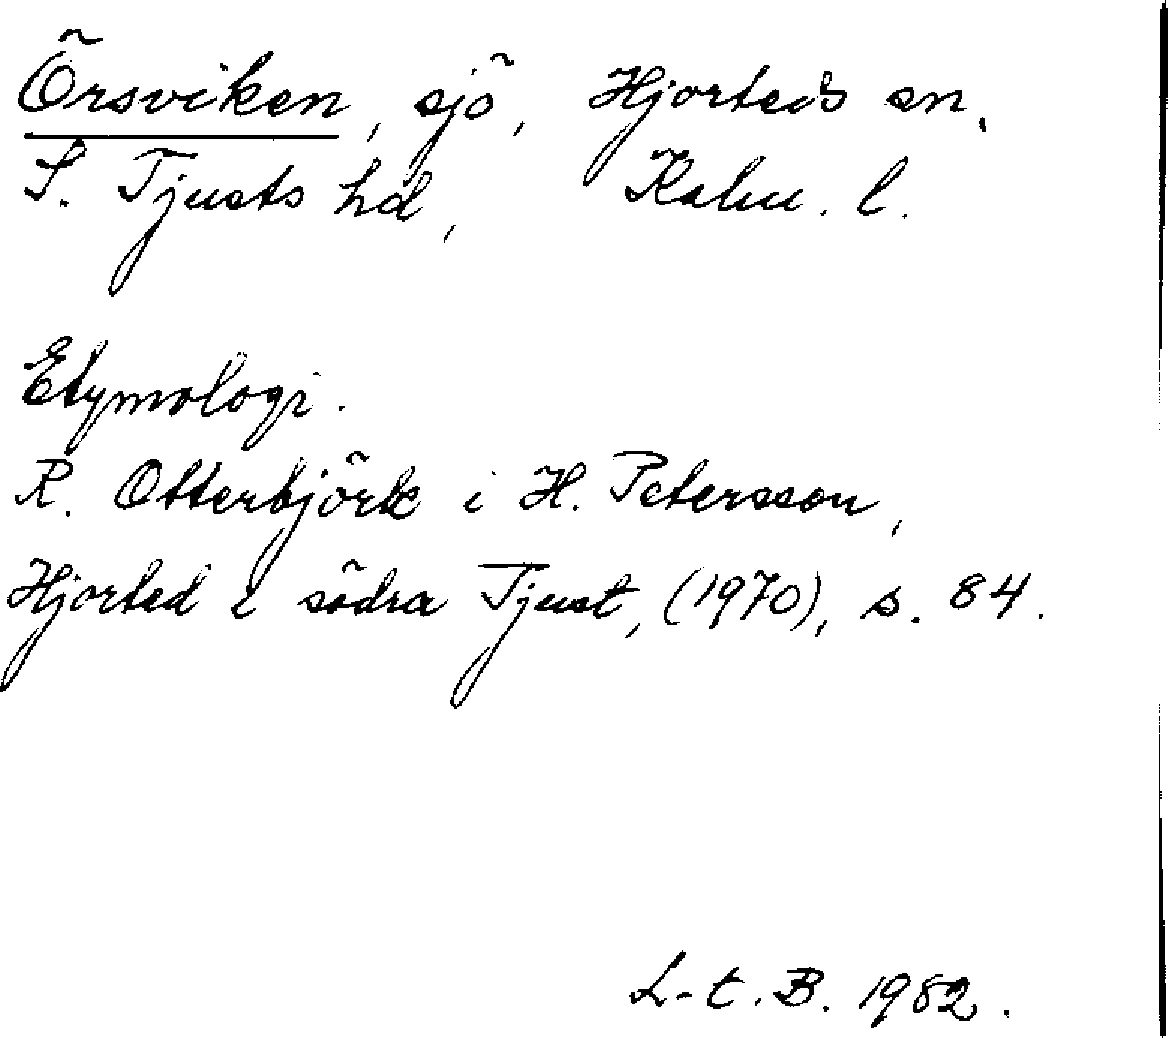 Örsviken, sjö, Hjorteds sn.
S. Tjusts hd, Kalm. l.
Etymologi.
R. Otterbjörk i H. Petersson,
Hjorted i södra Tjust, (1970), s. 84.
L-t. B. 1982.